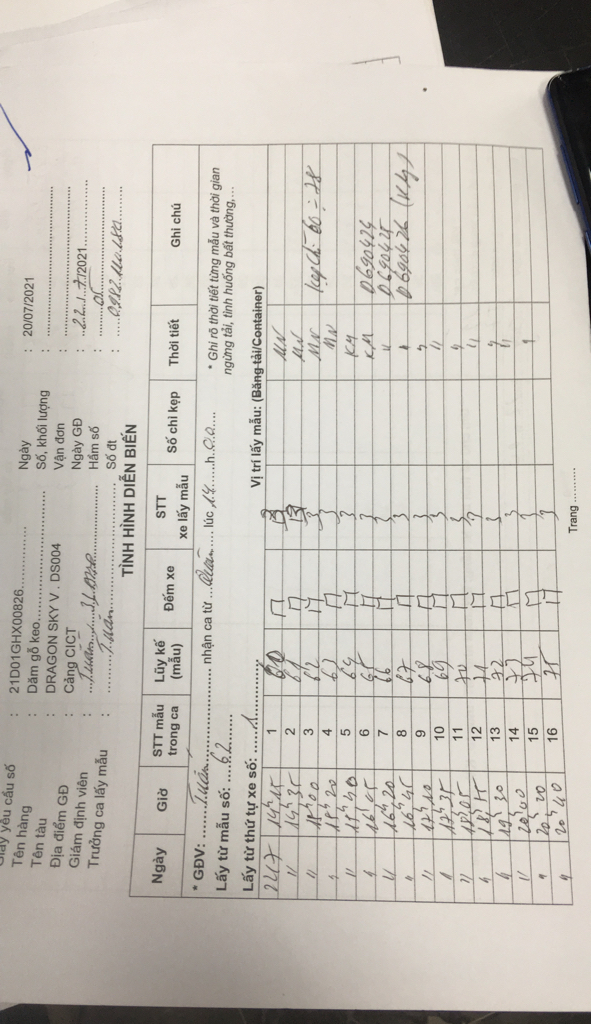 Giấy yêu cầu số : 21D01GHX00826 Ngày : 20/07/2021
Tên hàng : Dăm gỗ keo Số, khối lượng :
Tên tàu : DRAGON SKY V . DS004 Vận đơn :
Địa điểm GĐ : Cảng CICT Ngày GĐ : 22/7/2021
Giám định viên : Tuấn Hầm số : 05
Trưởng ca lấy mẫu : Tuấn Số đt :
TÌNH HÌNH DIỄN BIẾN
Ngày Giờ STT mẫu trong ca Lũy kế (mẫu) Đếm xe STT xe lấy mẫu Số chì kẹp Thời tiết Ghi chú
* GĐV: Tuấn nhận ca từ lúc 14 h 00 * Ghi rõ thời tiết từng mẫu và thời gian
Lấy từ mẫu số: 62 ngừng tải, tình huống bất thường,...
Lấy từ thứ tự xe số: 1 Vị trí lấy mẫu: (Băng tải/Container)
22/7 14h15 1 60 MN
" 14h35 2 61 3 MN
" 15h00 3 62 3 MN kẹp chì 60 ÷ 78
" 15h20 4 63 3 MN
" 15h40 5 64 3 KM
" 16h05 6 65 3 KM 0690424
" 16h20 7 66 3 " 0690425
" 16h45 8 67 3 " 0690426
" 17h10 9 68 3 "
" 17h35 10 69 3 "
" 18h05 11 70 3 "
" 18h45 12 71 3 "
" 19h30 13 72 3 "
" 20h00 14 73 3 "
" 20h20 15 74 3 "
" 20h40 16 75 3
Trang